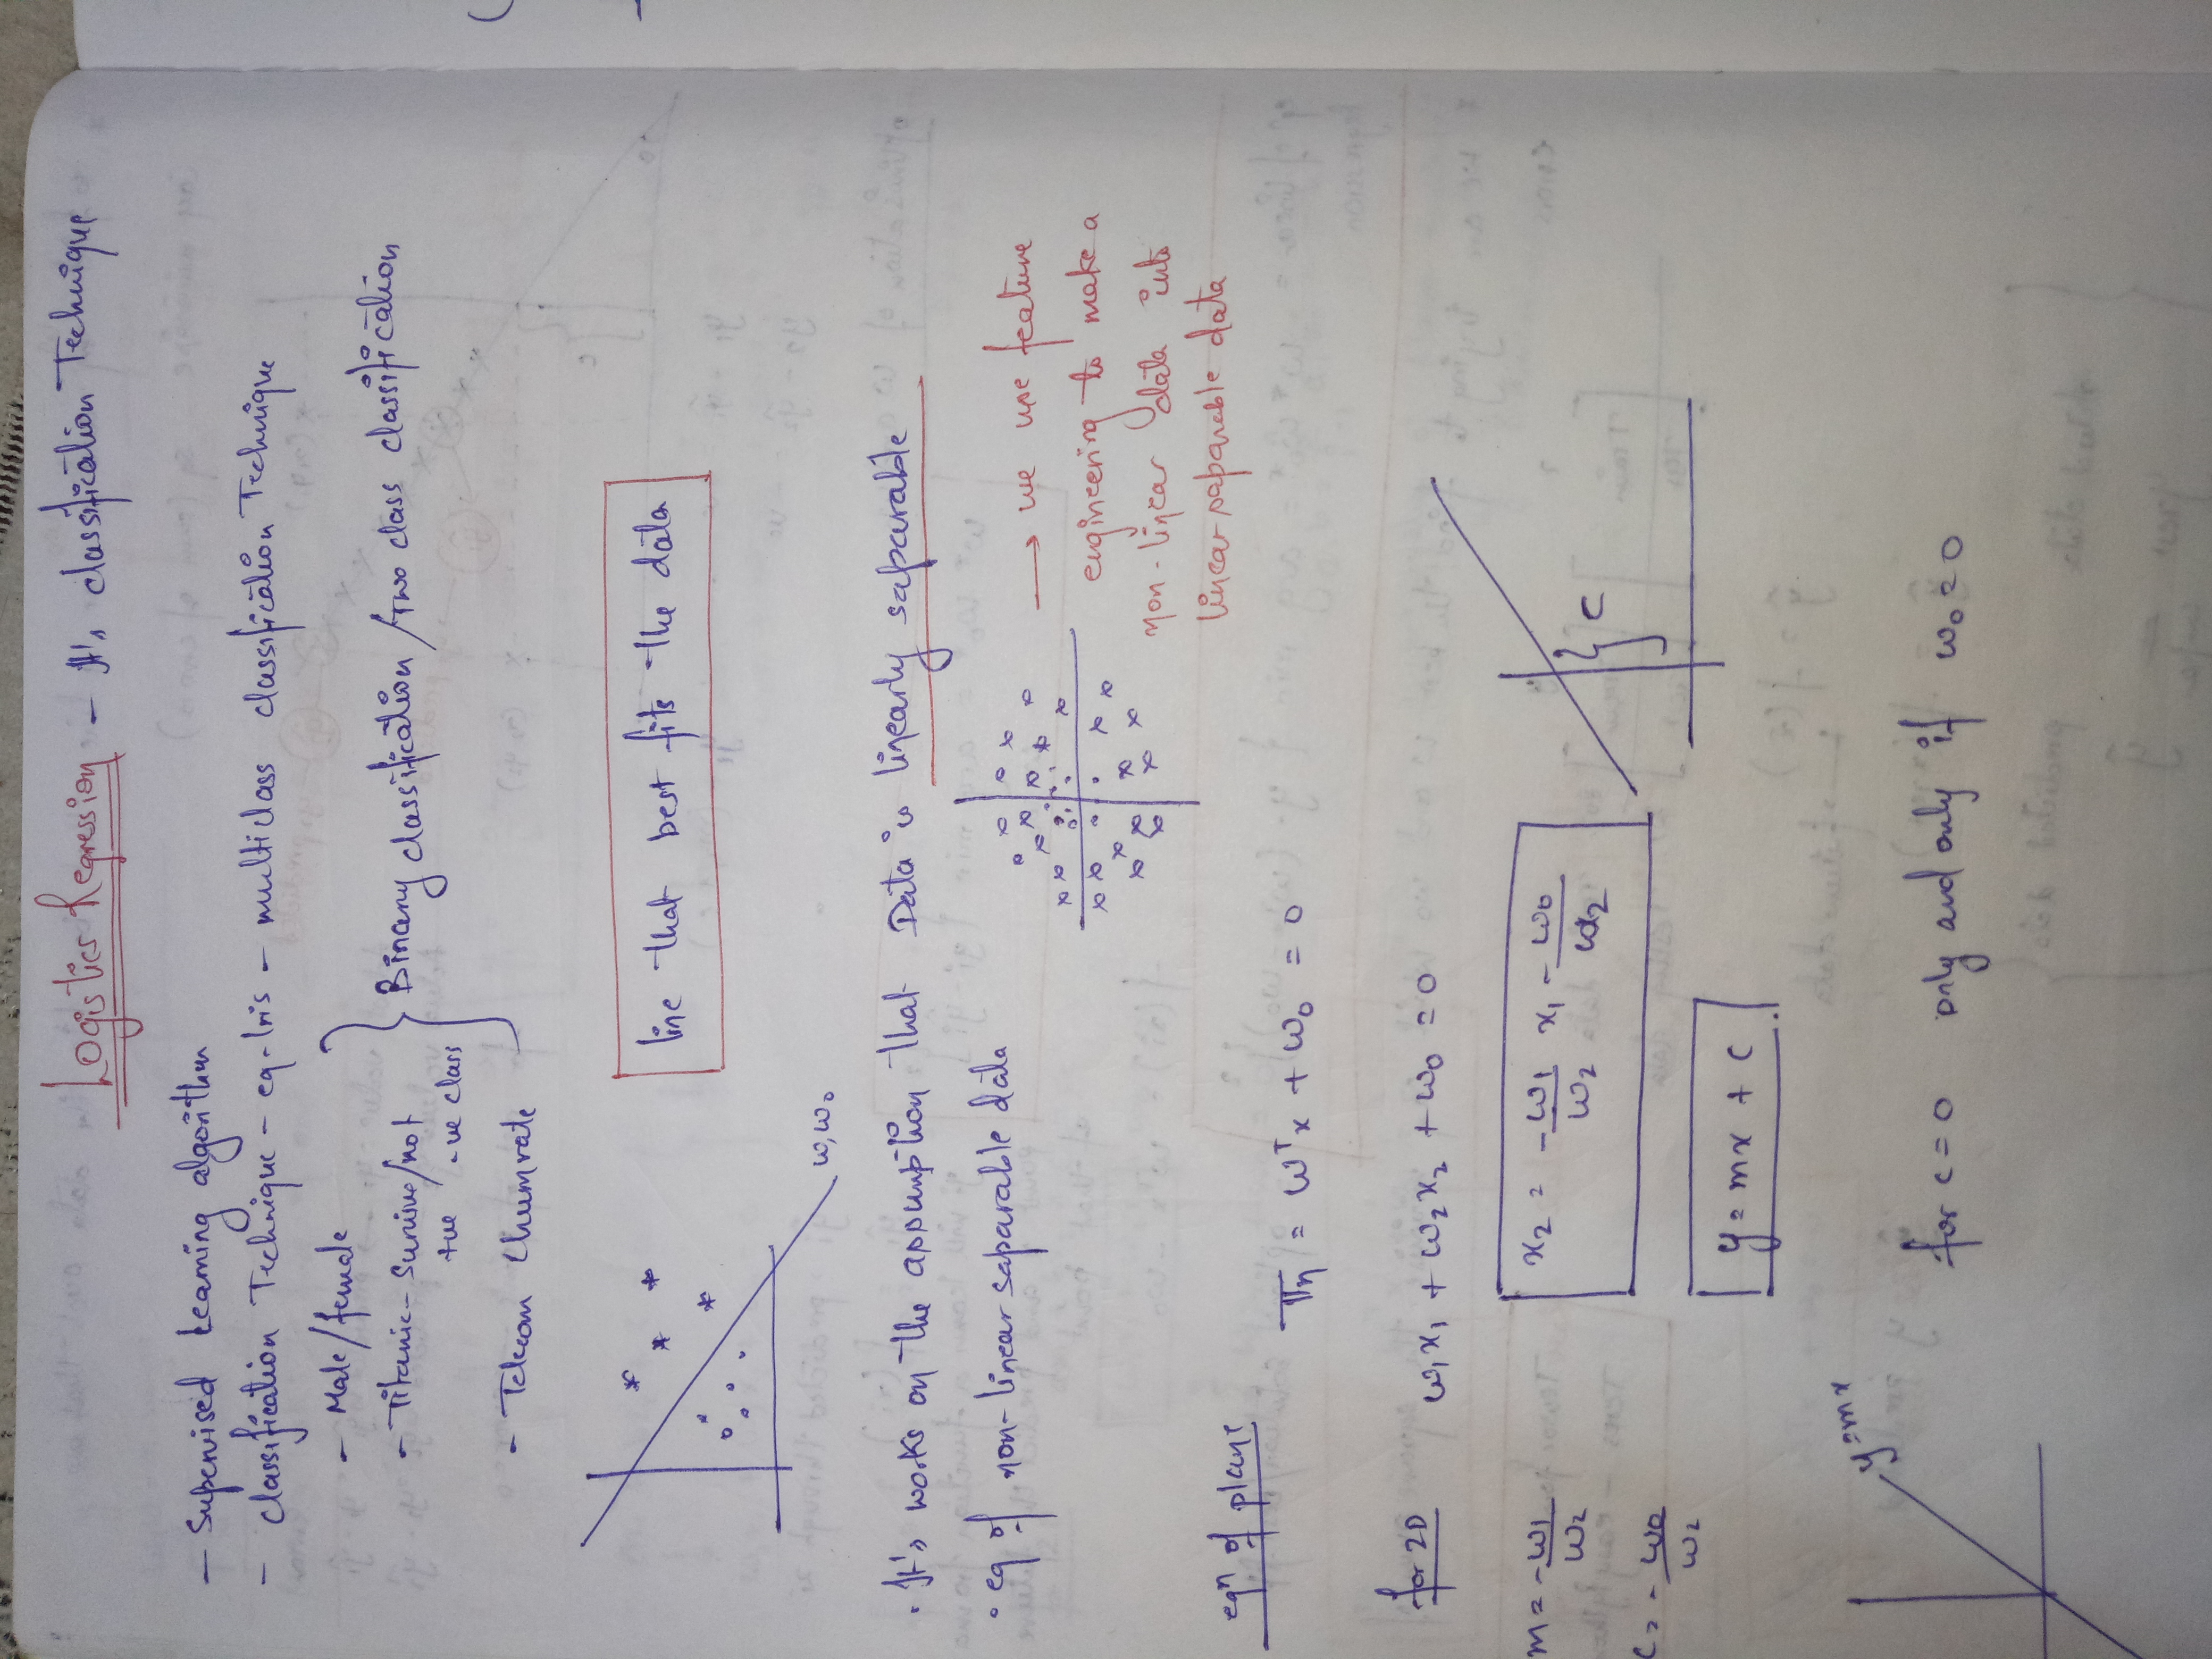 Logistics Regression - It's classification Technique
- Supervised Learning algorithm
- Classification Technique - eg - Iris - multiclass classification Technique
- Male/female
- Titanic - Survive/not
+ve -ve class
- Telecom Churnrate
Binary classification / Two class classification
line that best fits the data
w, w₀
. It's works on the assumption that Data is linearly saparable
. eg of non-linear saparable data
→ we use feature
engineering to make a
non-linear data into
linear saparable data
eqⁿ of plane
πₙ = wᵀx + w₀ = 0
for 2D w₁x₁ + w₂x₂ + w₀ = 0
m = -w₁/w₂
x₂ = -w₁/w₂ x₁ - w₀/w₂
C
c = -w₀/w₂
y = mx + c
y=mx
for c = 0 only and only if w₀ = 0